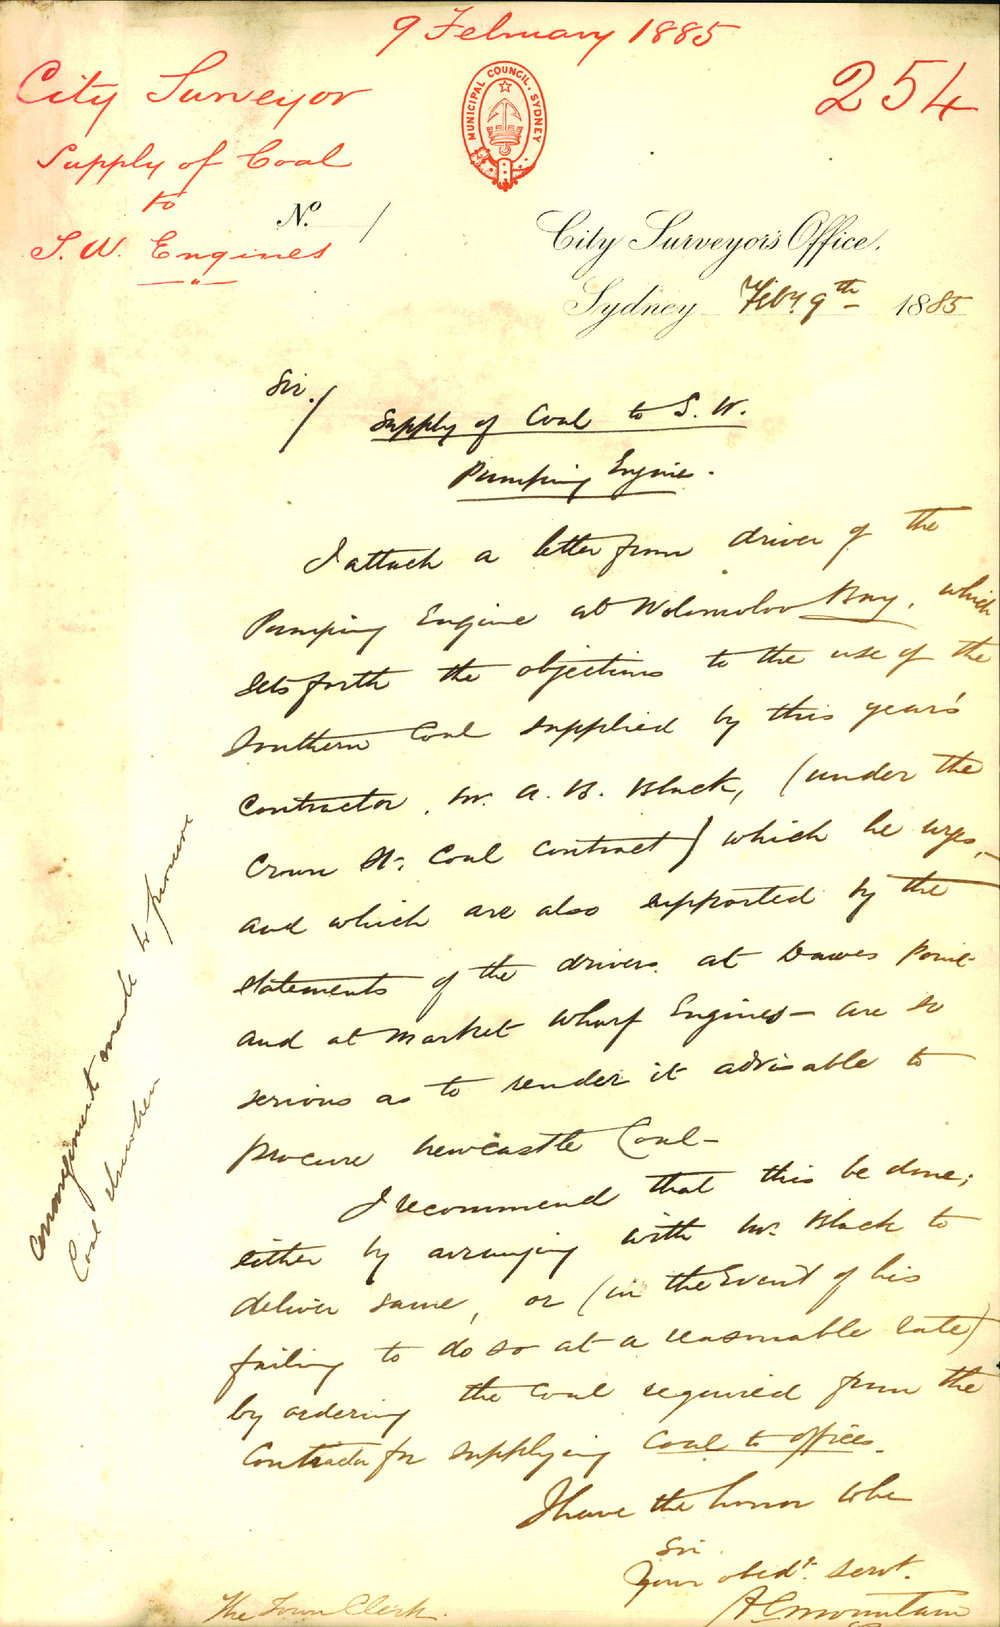 9 February 1885
City Surveyor
254
MUNICIPAL COUNCIL. SYDNEY
Supply of Coal
to
S. W. Engines
No. /
City Surveyor's Office.
Sydney Feby. 9th 1885
Sir./
Supply of Coal to S. W.
Pumping Engine.
I attach a letter from driver of the
Pumping Engine at Wolomoloo Bay, which
sets forth the objections to the use of the
Southern Coal supplied by this year's
Contractor, Mr. A. B. Black, (under the
Crown St. Coal Contract) which he urges,
and which are also supported by the
statements of the drivers at Dawes Point
and at Market Wharf Engines – are so
serious as to render it advisable to
procure Newcastle Coal –
I recommend that this be done;
either by arranging with Mr. Black to
deliver same, or (in the Event of his
failing to do so at a reasonable rate)
by ordering the Coal required from the
Contractor for supplying Coal to offices.
I have the honor to be
Sir.
Your obedt. servt.
A C Mountain
The Town Clerk.
arrangements made to procure
Coal elsewhere